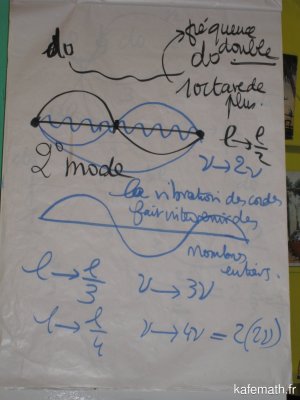 do
fréquence
do double
1 octave de
plus.
l → l/2
2° mode
ν → 2ν
la vibration des cordes
fait intervenir des
nombres
entiers.
l → l/3 ν → 3ν
l → l/4 ν → 4ν = 2(2ν)
kafemath.fr